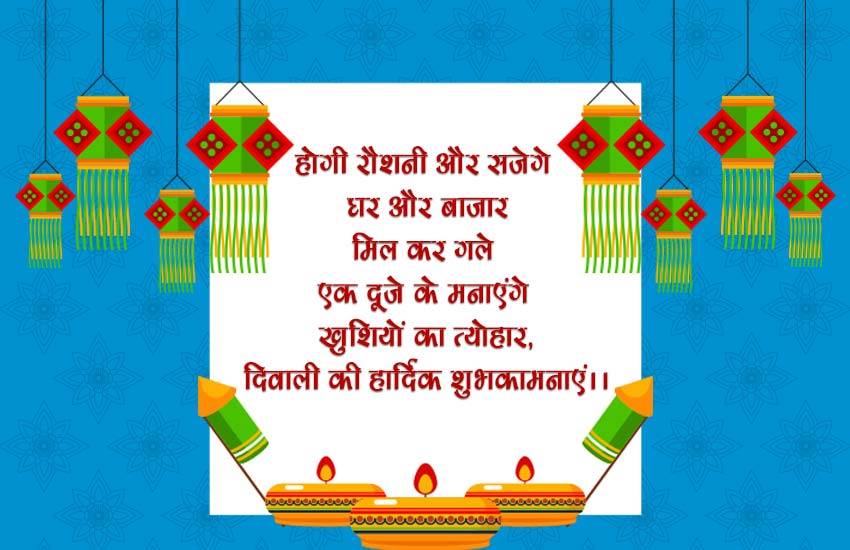 होगी रौशनी और सजेगे
घर और बाजार
मिल कर गले
एक दूजे के मनाएंगे
खुशियों का त्योहार,
दिवाली की हार्दिक शुभकामनाएं।।